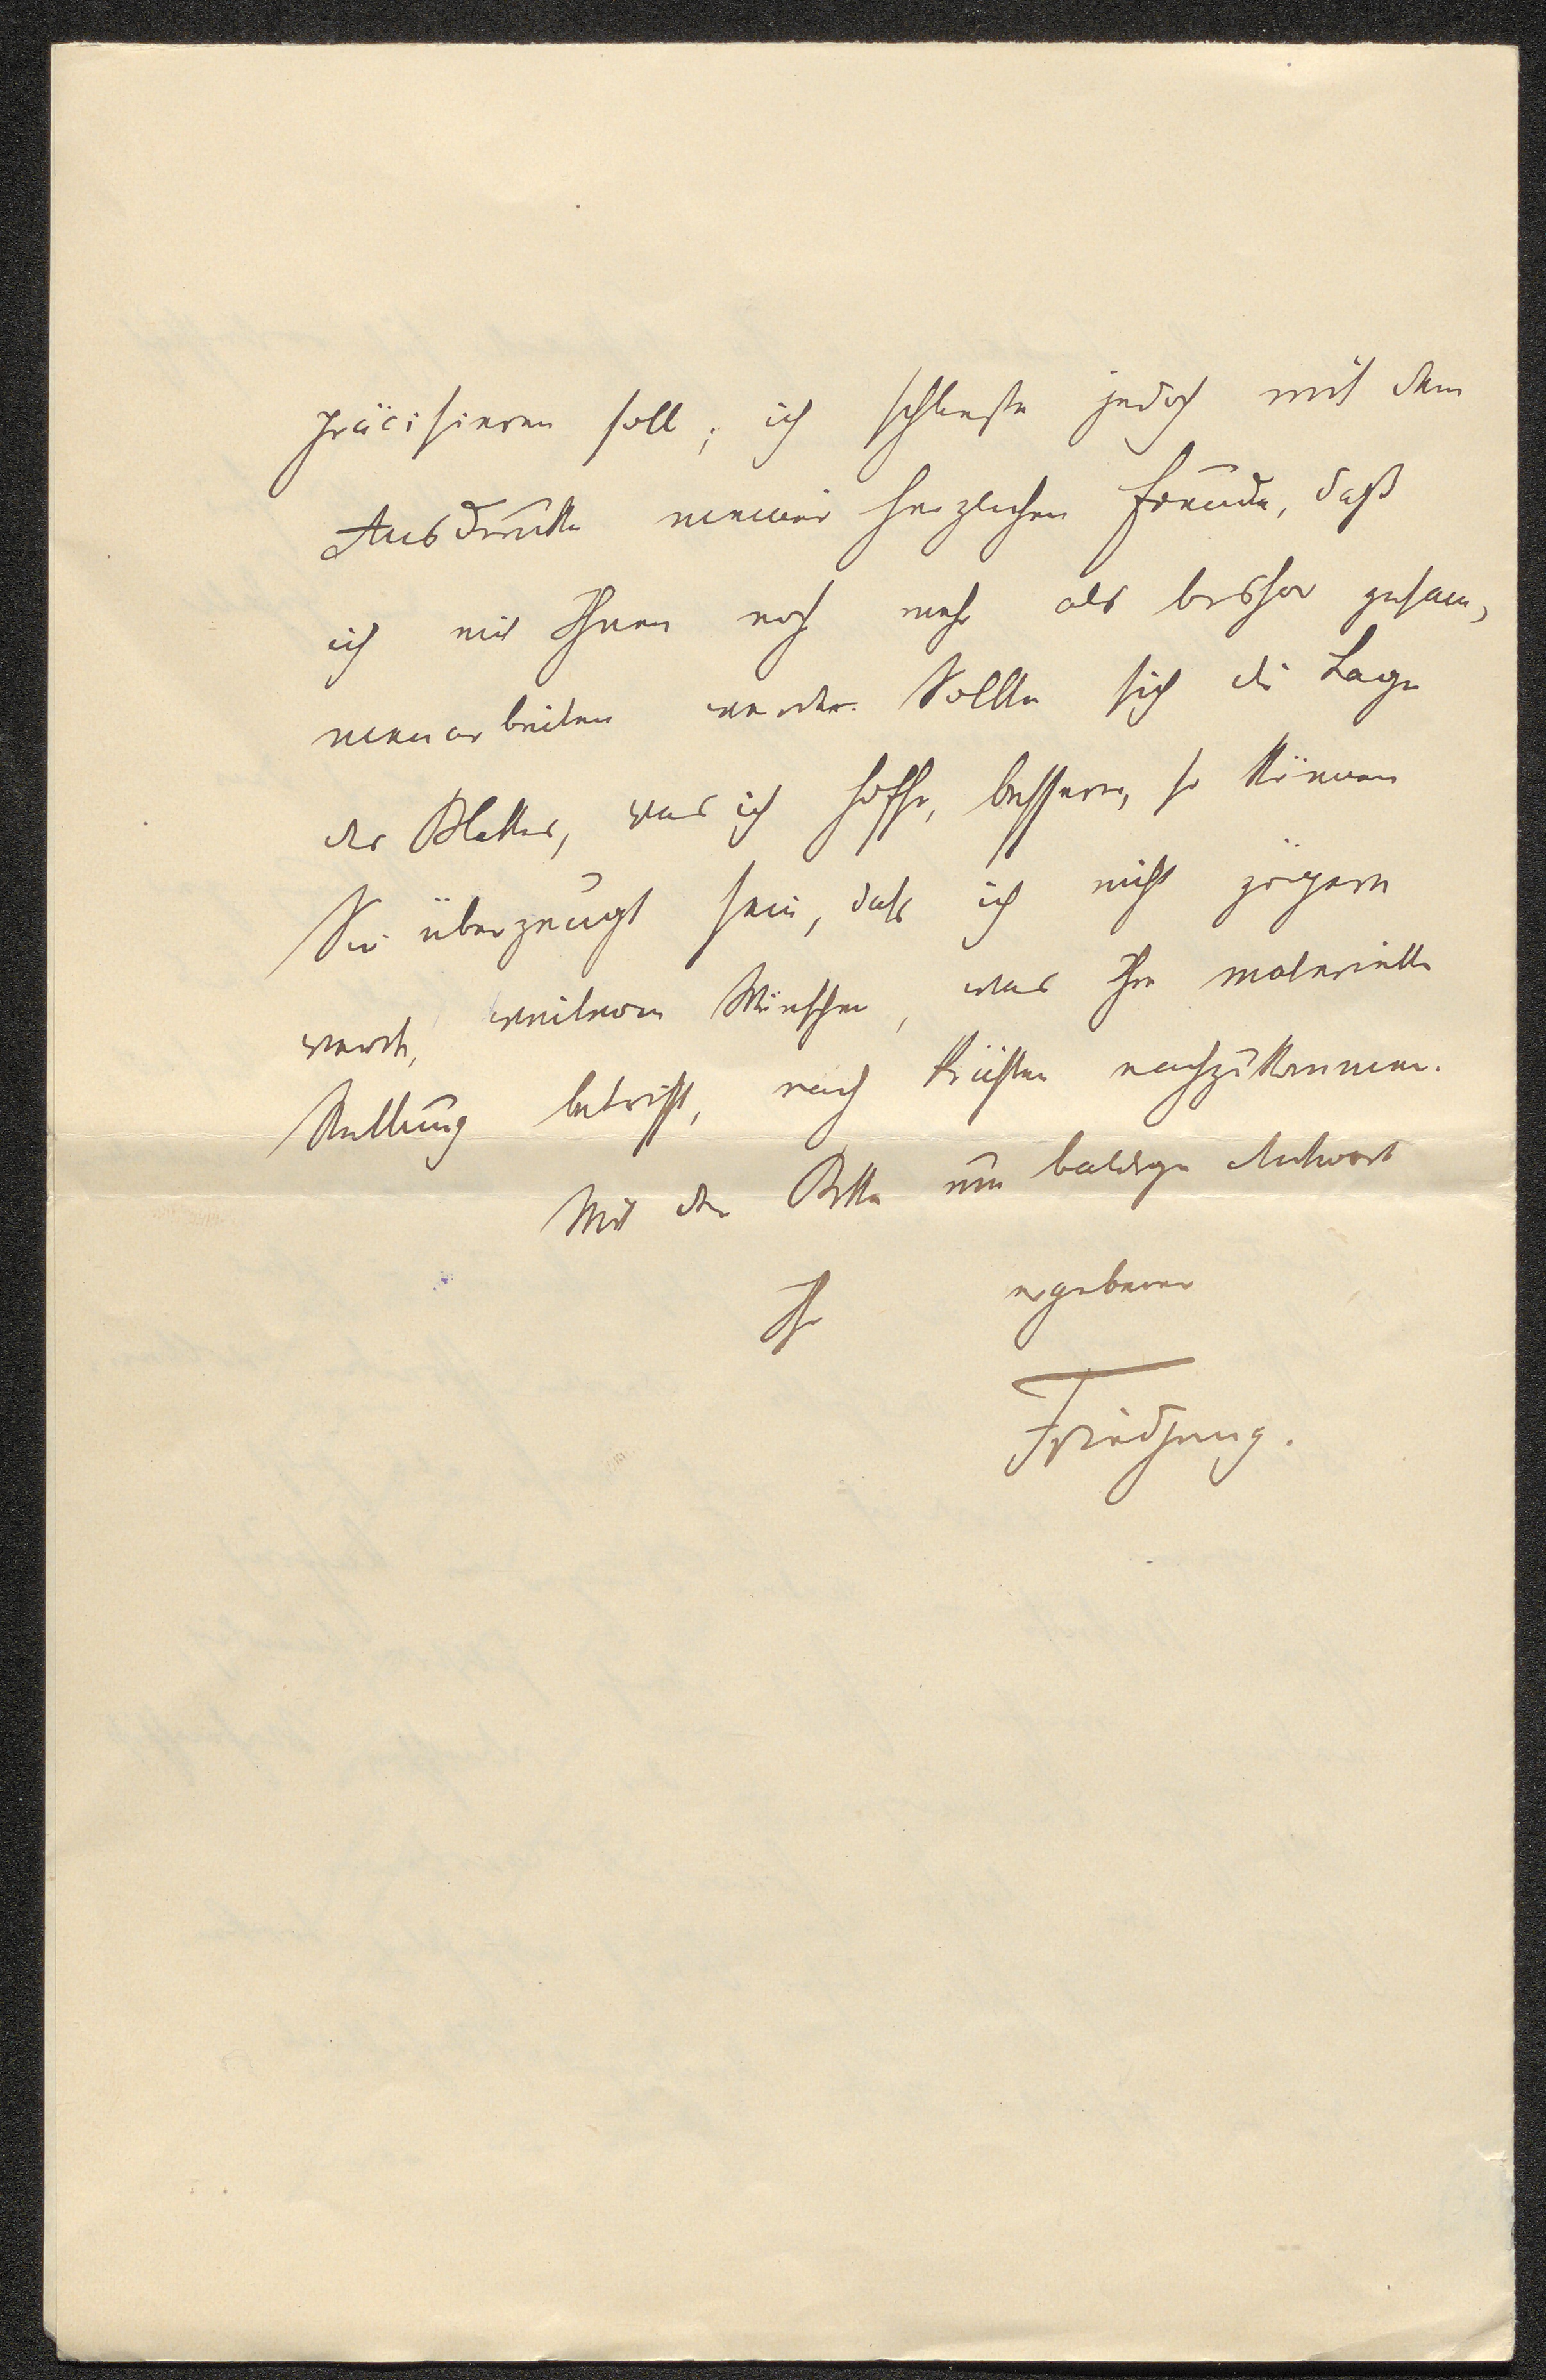 präcisieren soll; ich schließe jedoch mit dem
Ausdrucke meiner herzlichen Freude, daß
ich mit Ihnen noch mehr als bisher zusam-
menarbeiten werde. Sollte sich die Lage
des Blattes, was ich hoffe, bessern, so können
Sie überzeugt sein, daß ich nicht zögern
werde, weiteren Wünschen, was Ihre materielle
Stellung betrifft, nach Kräften nachzukommen.
Mit der Bitte um baldige Antwort
Ihr ergebener
Friedjung.